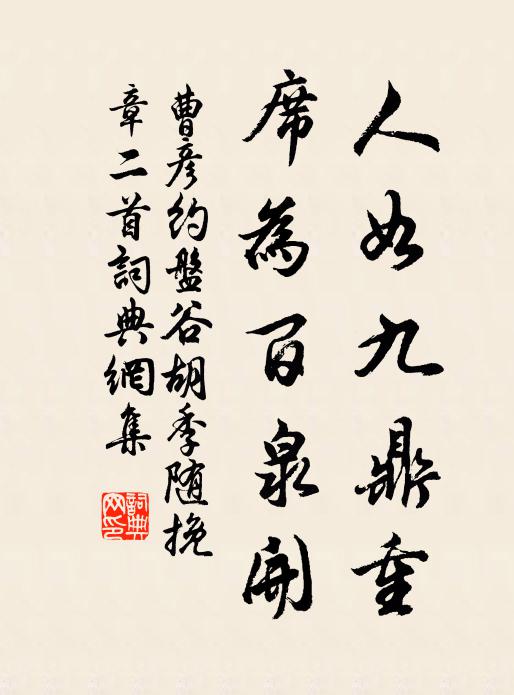 人如九鼎重
席為百泉開
曹彦約盤谷胡季随挽
章二首詞典網集
詞典
网印